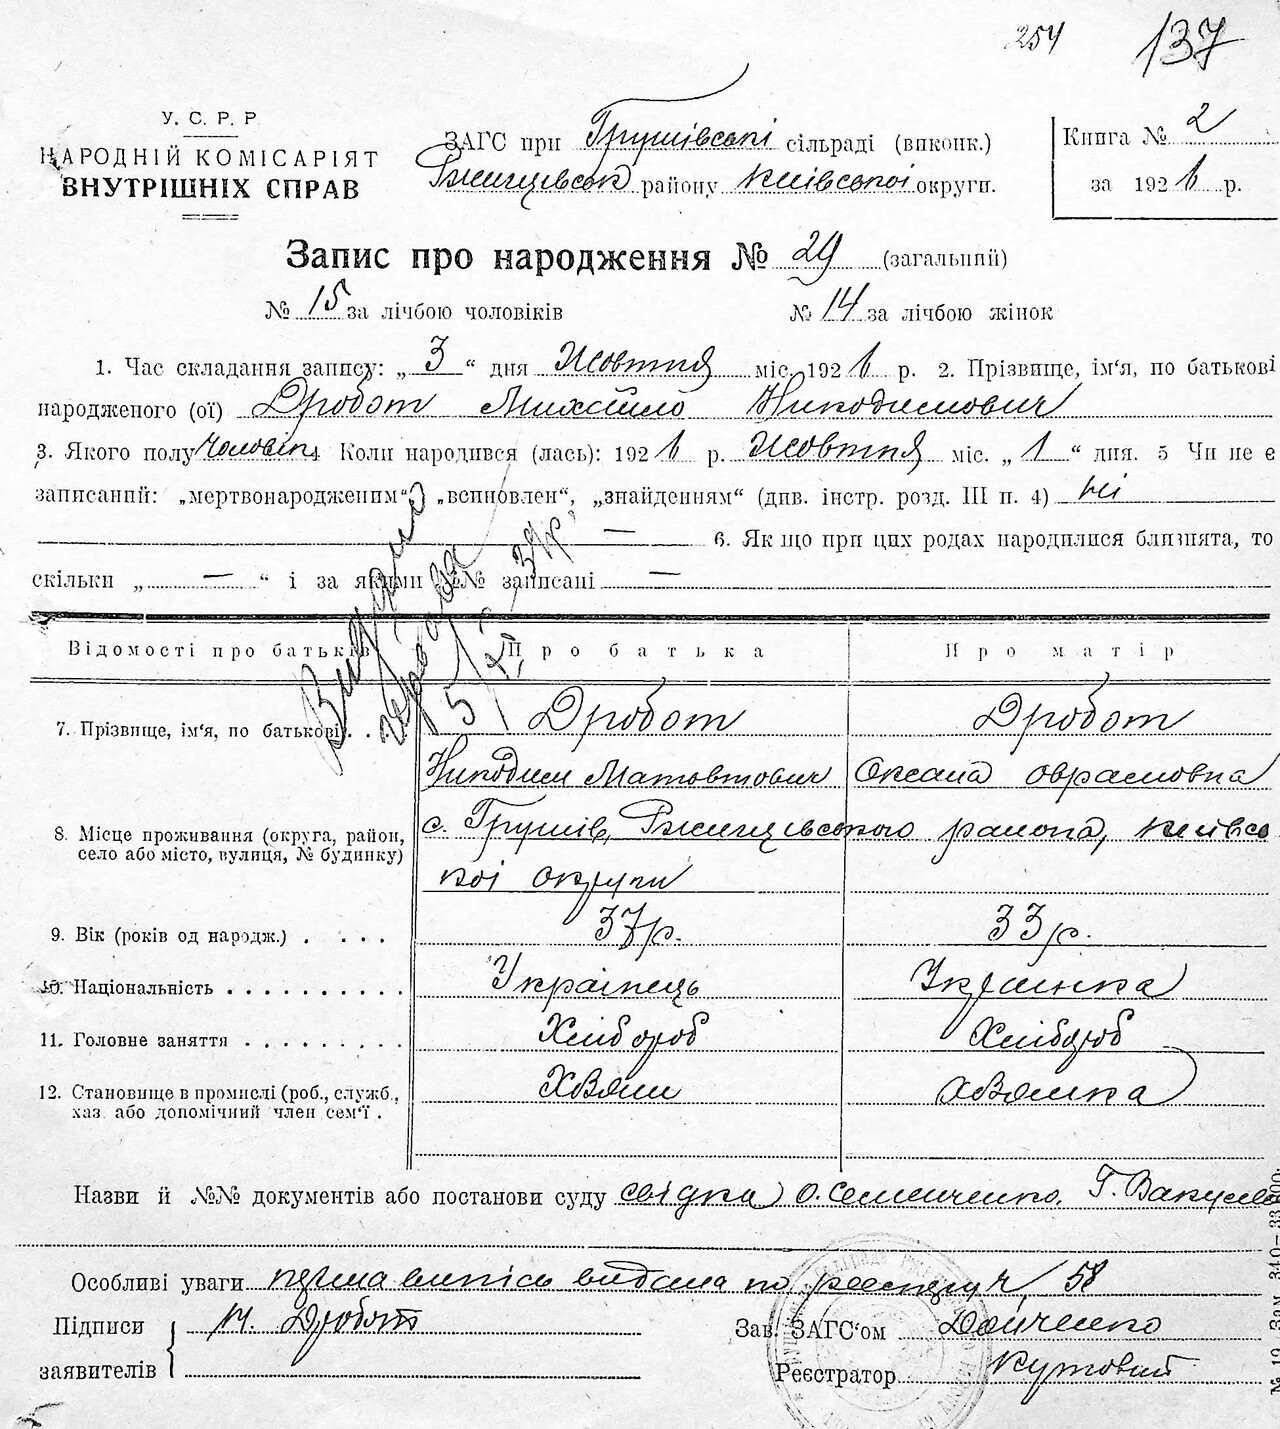 254 137
У. С. Р. Р
НАРОДНІЙ КОМІСАРІЯТ
ВНУТРІШНІХ СПРАВ
ЗАГС при Грушівські сільраді (виконк.)
Ржищевськ району Київської округи.
Книга № 2
за 1926 р.
Запис про народження № 29 (загальний)
№ 15 за лічбою чоловіків № 14 за лічбою жінок
1. Час складання запису: „ 3 “ дня Жовтня міс. 1926 р. 2. Прізвище, ім‘я, по батькові
народженого (ої) Дробот Михайло Никодимович
3. Якого полу чоловіч. 4 Коли народився (лась): 1926 р. Жовтня міс. „ 1 “ дня. 5 Чи не є
записаний: „мертвонародженим“, „всиновлен“, „знайденням“ (див. інстр. розд. III п. 4) ні
— 6. Як що при цих родах народилися близнята, то
скільки „ — “ і за якими №№ записані —
Видано
5/XI 39р.
Відомості про батьків Про батька Про матір
7. Прізвище, ім‘я, по батькові . . Дробот Дробот
Никодим Матовтович Оксана Оврамовна
8. Місце проживання (округа, район,
село або місто, вулиця, № будинку)
с. Грушів, Ржищевського района, Київсь
кої округи
9. Вік (років од народж.) . . . . 37р. 33р.
10. Національність . . . . . . . . . . Українець Украинка
11. Головне заняття . . . . . . . . . Хлібороб Хлібороб
12. Становище в промислі (роб., служб.,
хаз. або допомічний член сем‘ї .
Хозяин Хозяика
Назви й №№ документів або постанови суду свідки О. Семенченко, Г. Вакулен
Особливі уваги перша випись видана по реестру ч 58
Підписи
заявителів
М. Дробот
Зав. ЗАГС‘ом Дойченко
Реєстратор Кутовий